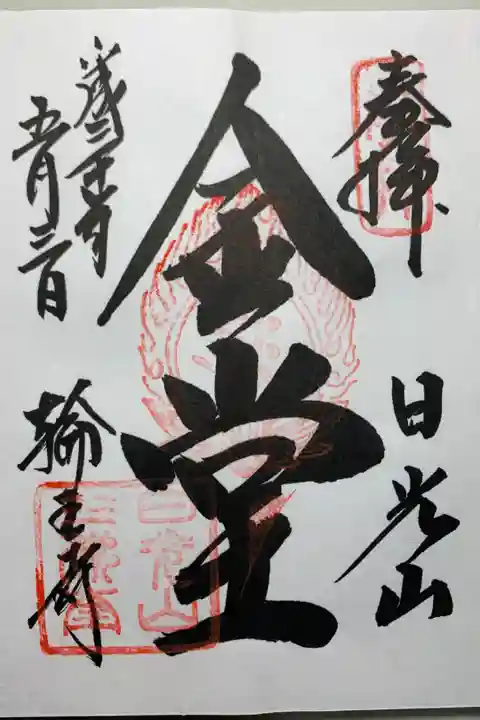 奉拝
日光山
金堂
五月三日
輪王寺
日光山